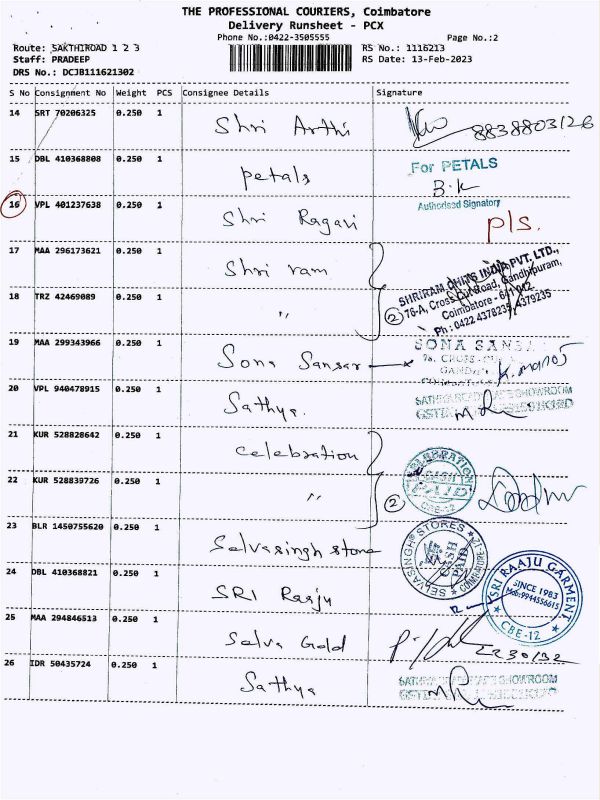 THE PROFESSIONAL COURIERS, Coimbatore
Delivery Runsheet - PCX
Phone No.:0422-3505555 Page No.:2
Route: SAKTHIROAD 1 2 3 RS No.: 1116213
Staff: PRADEEP RS Date: 13-Feb-2023
DRS No.: DCJB111621302
S No Consignment No Weight PCS Consignee Details Signature
14 SRT 70206325 0.250 1 Shri Arthi 8838803126
15 DBL 410368808 0.250 1 petals For PETALS
B.K
Authorised Signatory
16 VPL 401237638 0.250 1 Shri Ragavi P/S.
17 MAA 296173621 0.250 1 Shri ram SHRIRAM CHITS INDIA PVT. LTD.,
76-A, Cross Cut Road, Gandhipuram,
Coimbatore - 641 012
Ph : 0422 4378235, 4379235
18 TRZ 42469089 0.250 1 " 2
19 MAA 299343966 0.250 1 Sona Sansar SONA SANSA
K. manoj
20 VPL 940478915 0.250 1 Sathya. SHOWROOM
21 KUR 528828642 0.250 1 Celebration CELEBRATION
CASH
PAID
CBE-12
22 KUR 528839726 0.250 1 " 2
23 BLR 1450755620 0.250 1 Selvasingh store SELVASINGH STORES
CASH
PAID
24 DBL 410368821 0.250 1 SRI Raaju SRI RAAJU GARMENT
SINCE 1983
Mob:9944556615
CBE-12
25 MAA 294846513 0.250 1 Selva Gold 2230132
26 IDR 50435724 0.250 1 Sathya SHOWROOM